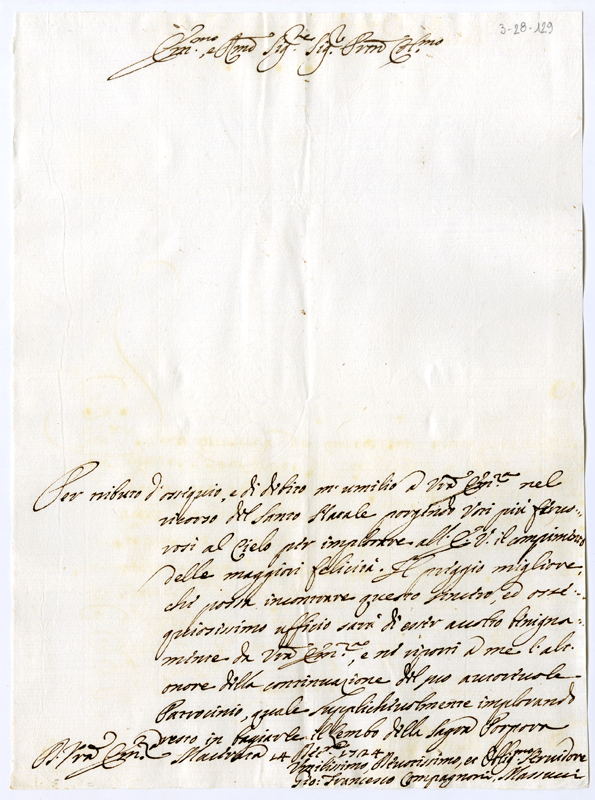 3-28-129
Em.mo, e Rmo Sig.re Sig.re Prone Col.mo
Per tributo d'ossequio, e di debito m'umilio a Vra Em.za nel
ricorso del Santo Natale porgendo Voti più fervo-
rosi al Cielo per implorare all'E.V. il compimento
delle maggiori felicità. Il preggio migliore,
che possa incontrare questo sincero, ed osse-
quiosissimo ufficio sarà di esser accolto benigna-
mente da Vra Em.za, e ne riporti a me l'alt
onore della continuazione del suo autorevole
Patrocinio, quale supplichevolmente implorando
resto in baciarle il lembo della Sagra Porpora
D. Vra Em.za Macerata 14 Xbre 1724
Umilissimo, Divotissimo, ed Obligmo Servidore
Gio: Francesco Compagnoni Massucci